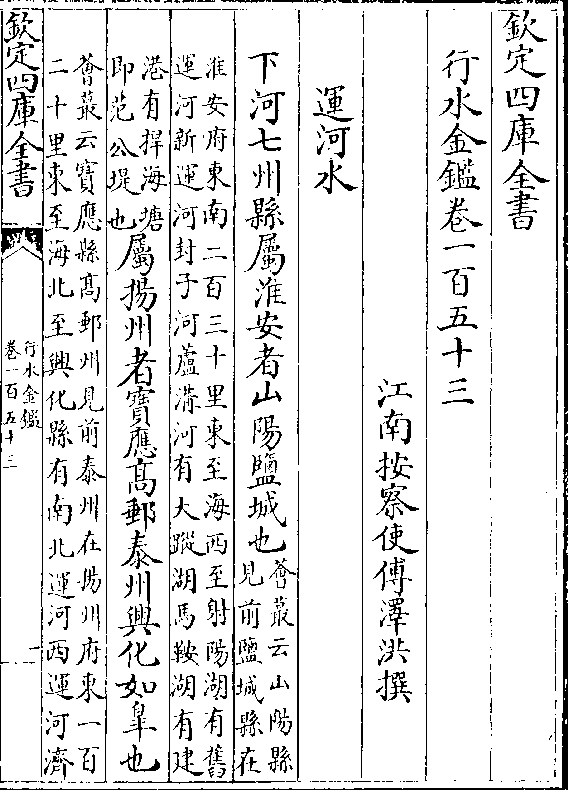 欽定四庫全書
行水金鑑卷一百五十三
江南按察使傅澤洪撰
運河水
下河七州縣屬淮安者山陽鹽城也
薈蕞云山陽縣
見前鹽城縣在
淮安府東南二百三十里東至海西至射陽湖有舊
運河新運河封子河蘆溝河有大蹤湖馬鞍湖有建
港有捍海塘
即范公堤也
屬揚州者寶應髙郵泰州興化如臯也
薈蕞云寶應縣髙郵州見前泰州在揚州府東一百
二十里東至海北至興化縣有南北運河西運河濟
欽定四庫全書
行水金鑑
卷一百五十三
一